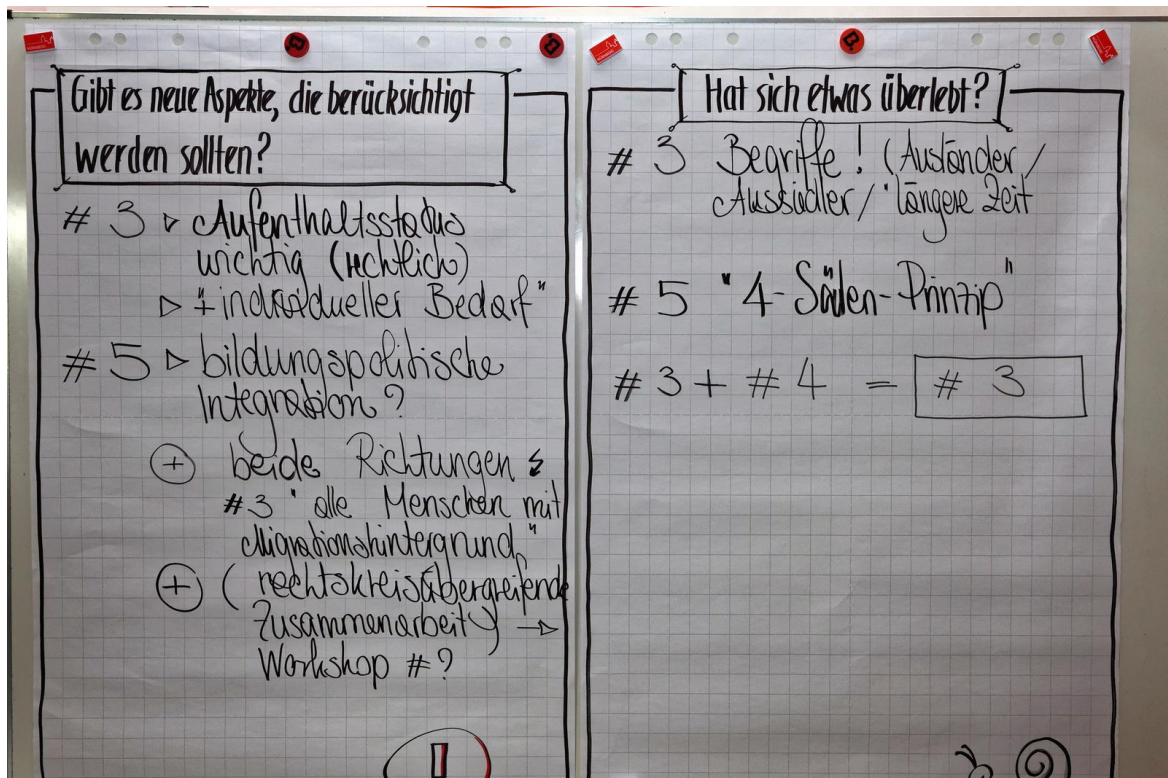 Gibt es neue Aspekte, die berücksichtigt
werden sollten?
# 3 ▷ Aufenthaltsstatus
wichtig (rechtlich)
▷ "+ individueller Bedarf"
# 5 ▷ bildungspolitische
Integration?
+ beide Richtungen
#3 "alle Menschen mit
Migrationshintergrund"
+ (rechtskreisübergreifende
Zusammenarbeit) →
Workshop #?
Hat sich etwas überlebt?
# 3 Begriffe! (Ausländer /
Aussiedler / "längere Zeit
# 5 "4-Säulen-Prinzip"
# 3 + # 4 = # 3